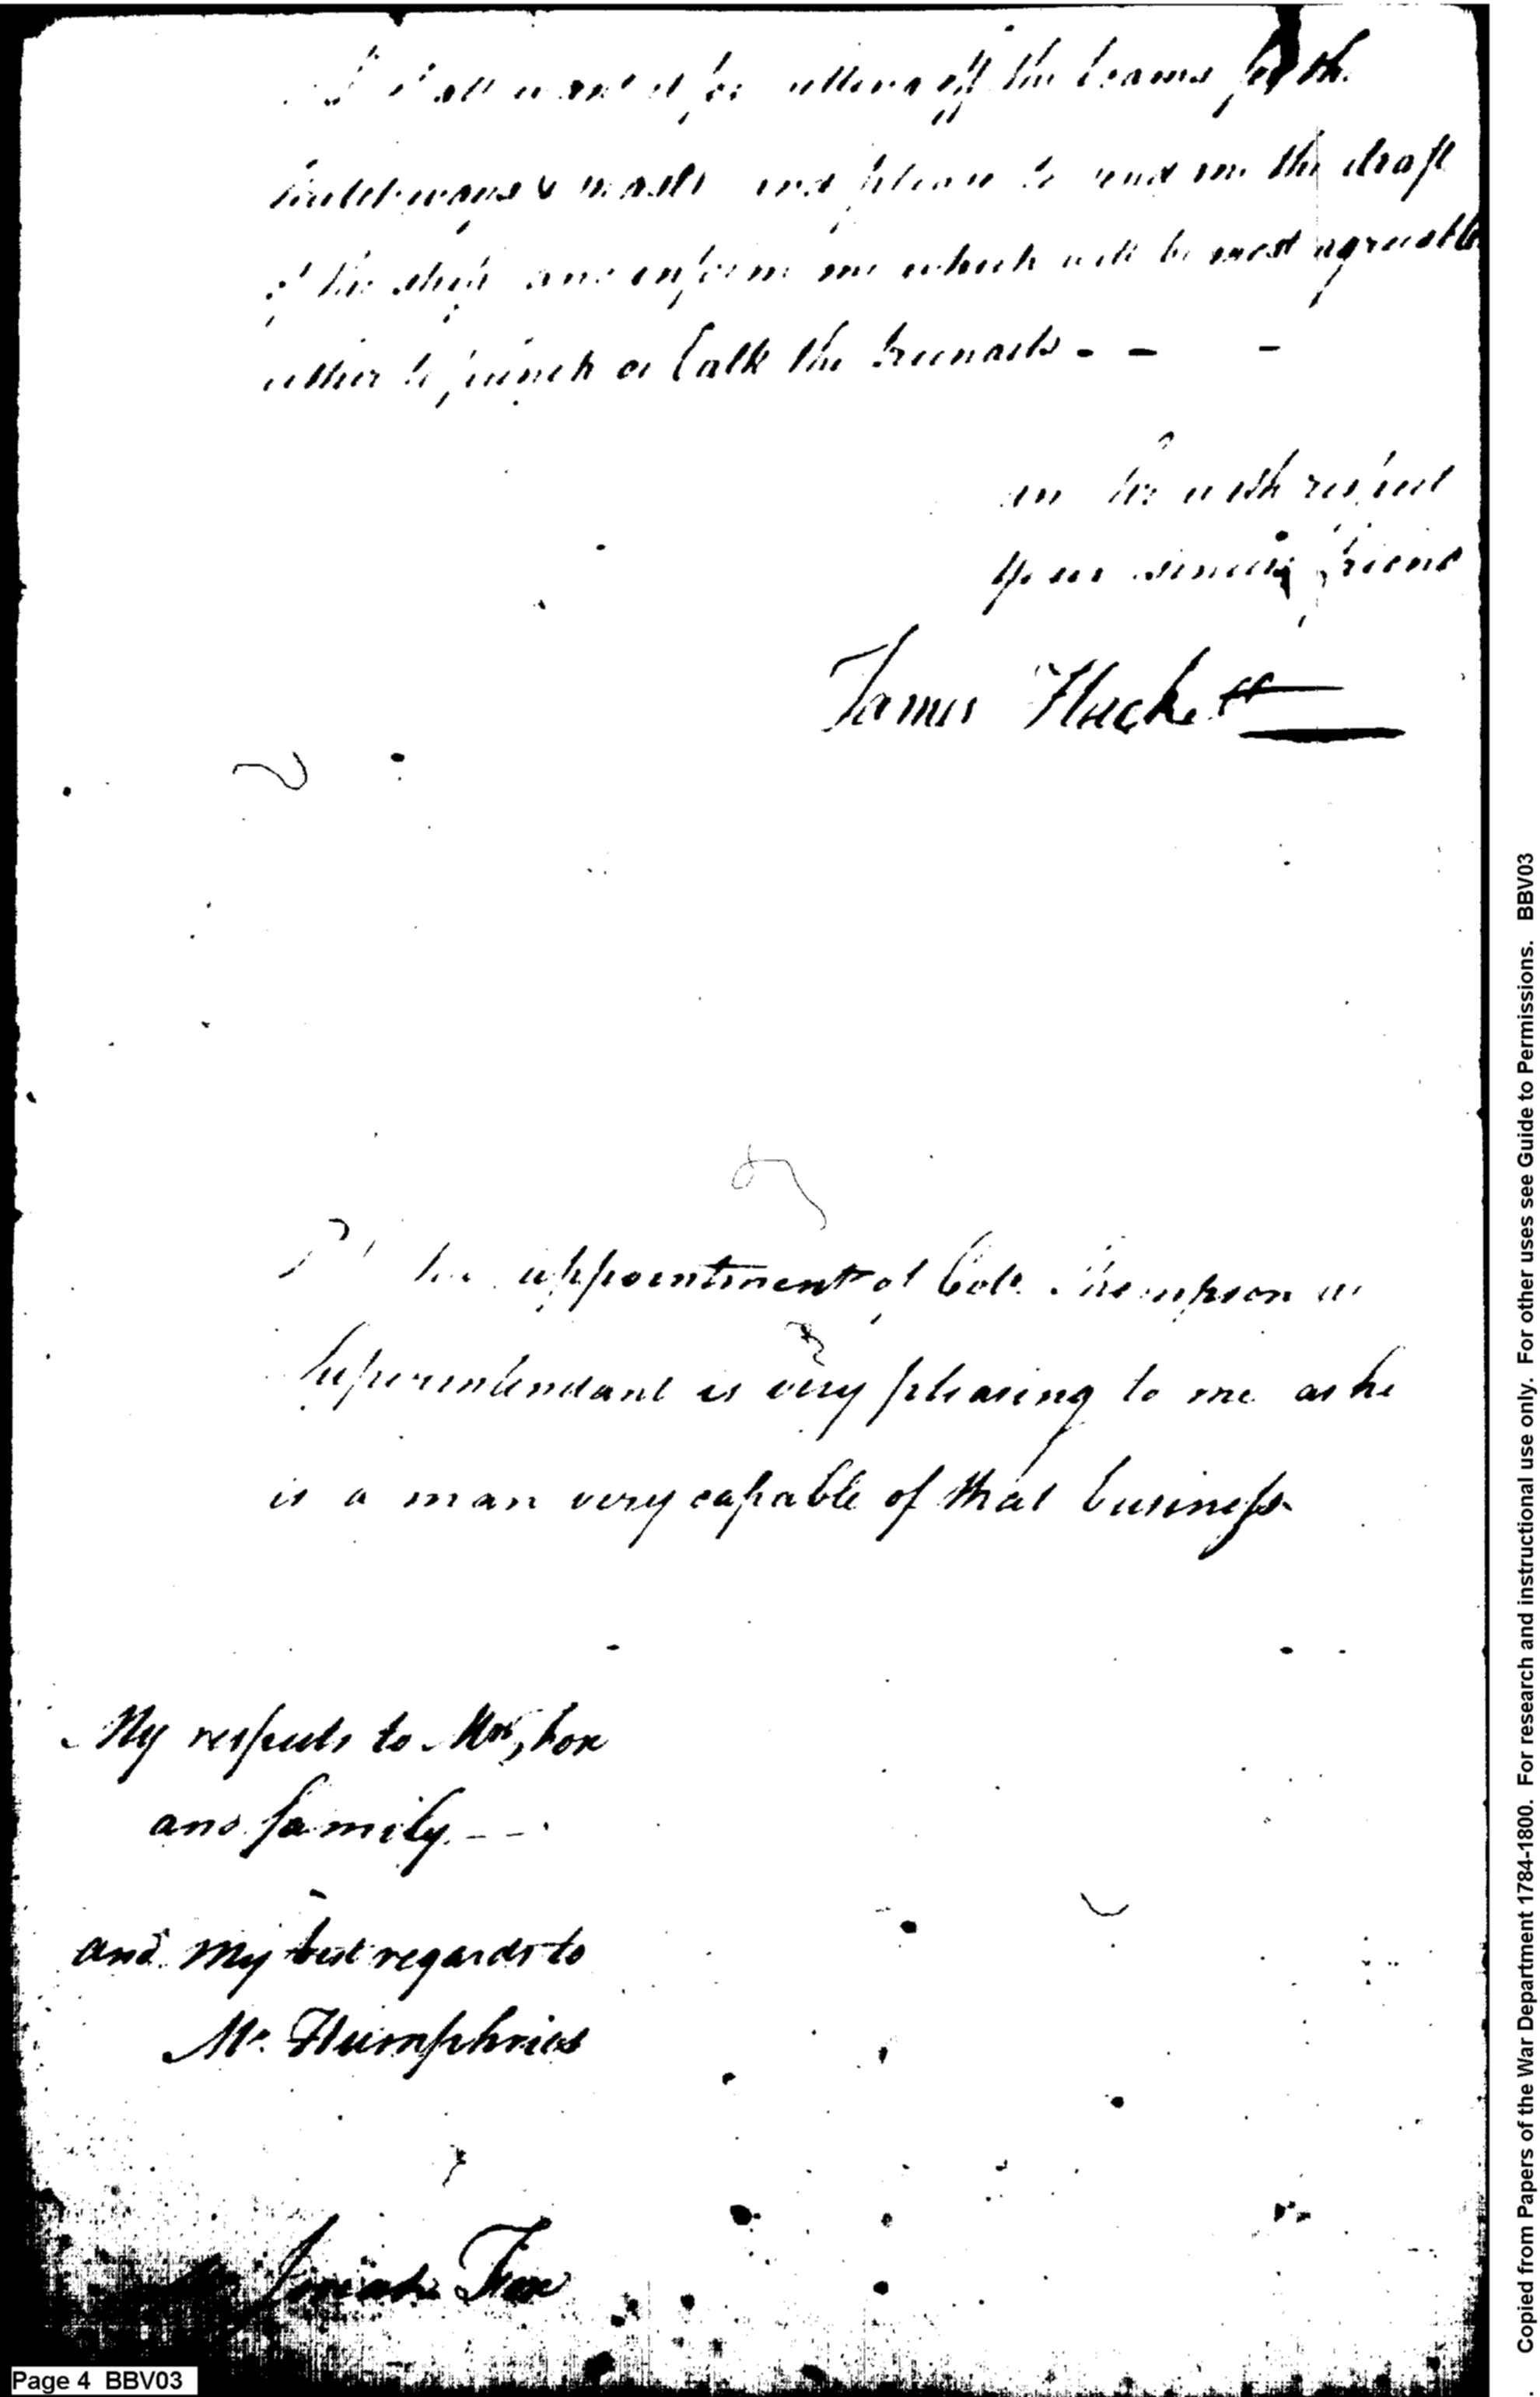 I shall want it for setting off the beams for the
hatchways & masts and please to send me the draft
of the ship and inform me which will be most agreeable
either to punch or Calk the treenails - - -
am Sir with respect
your sincere friend
James Hackett
PS the appointment of Colo. Thompson as
Superintendant is very pleasing to me as he
is a man very capable of that business
My respects to Mrs, Fox
and family - -
and my best regards to
Mr. Humphries
Josiah Fox
Page 4 BBV03
Copied from Papers of the War Department 1784-1800. For research and instructional use only. For other uses see Guide to Permissions. BBV03